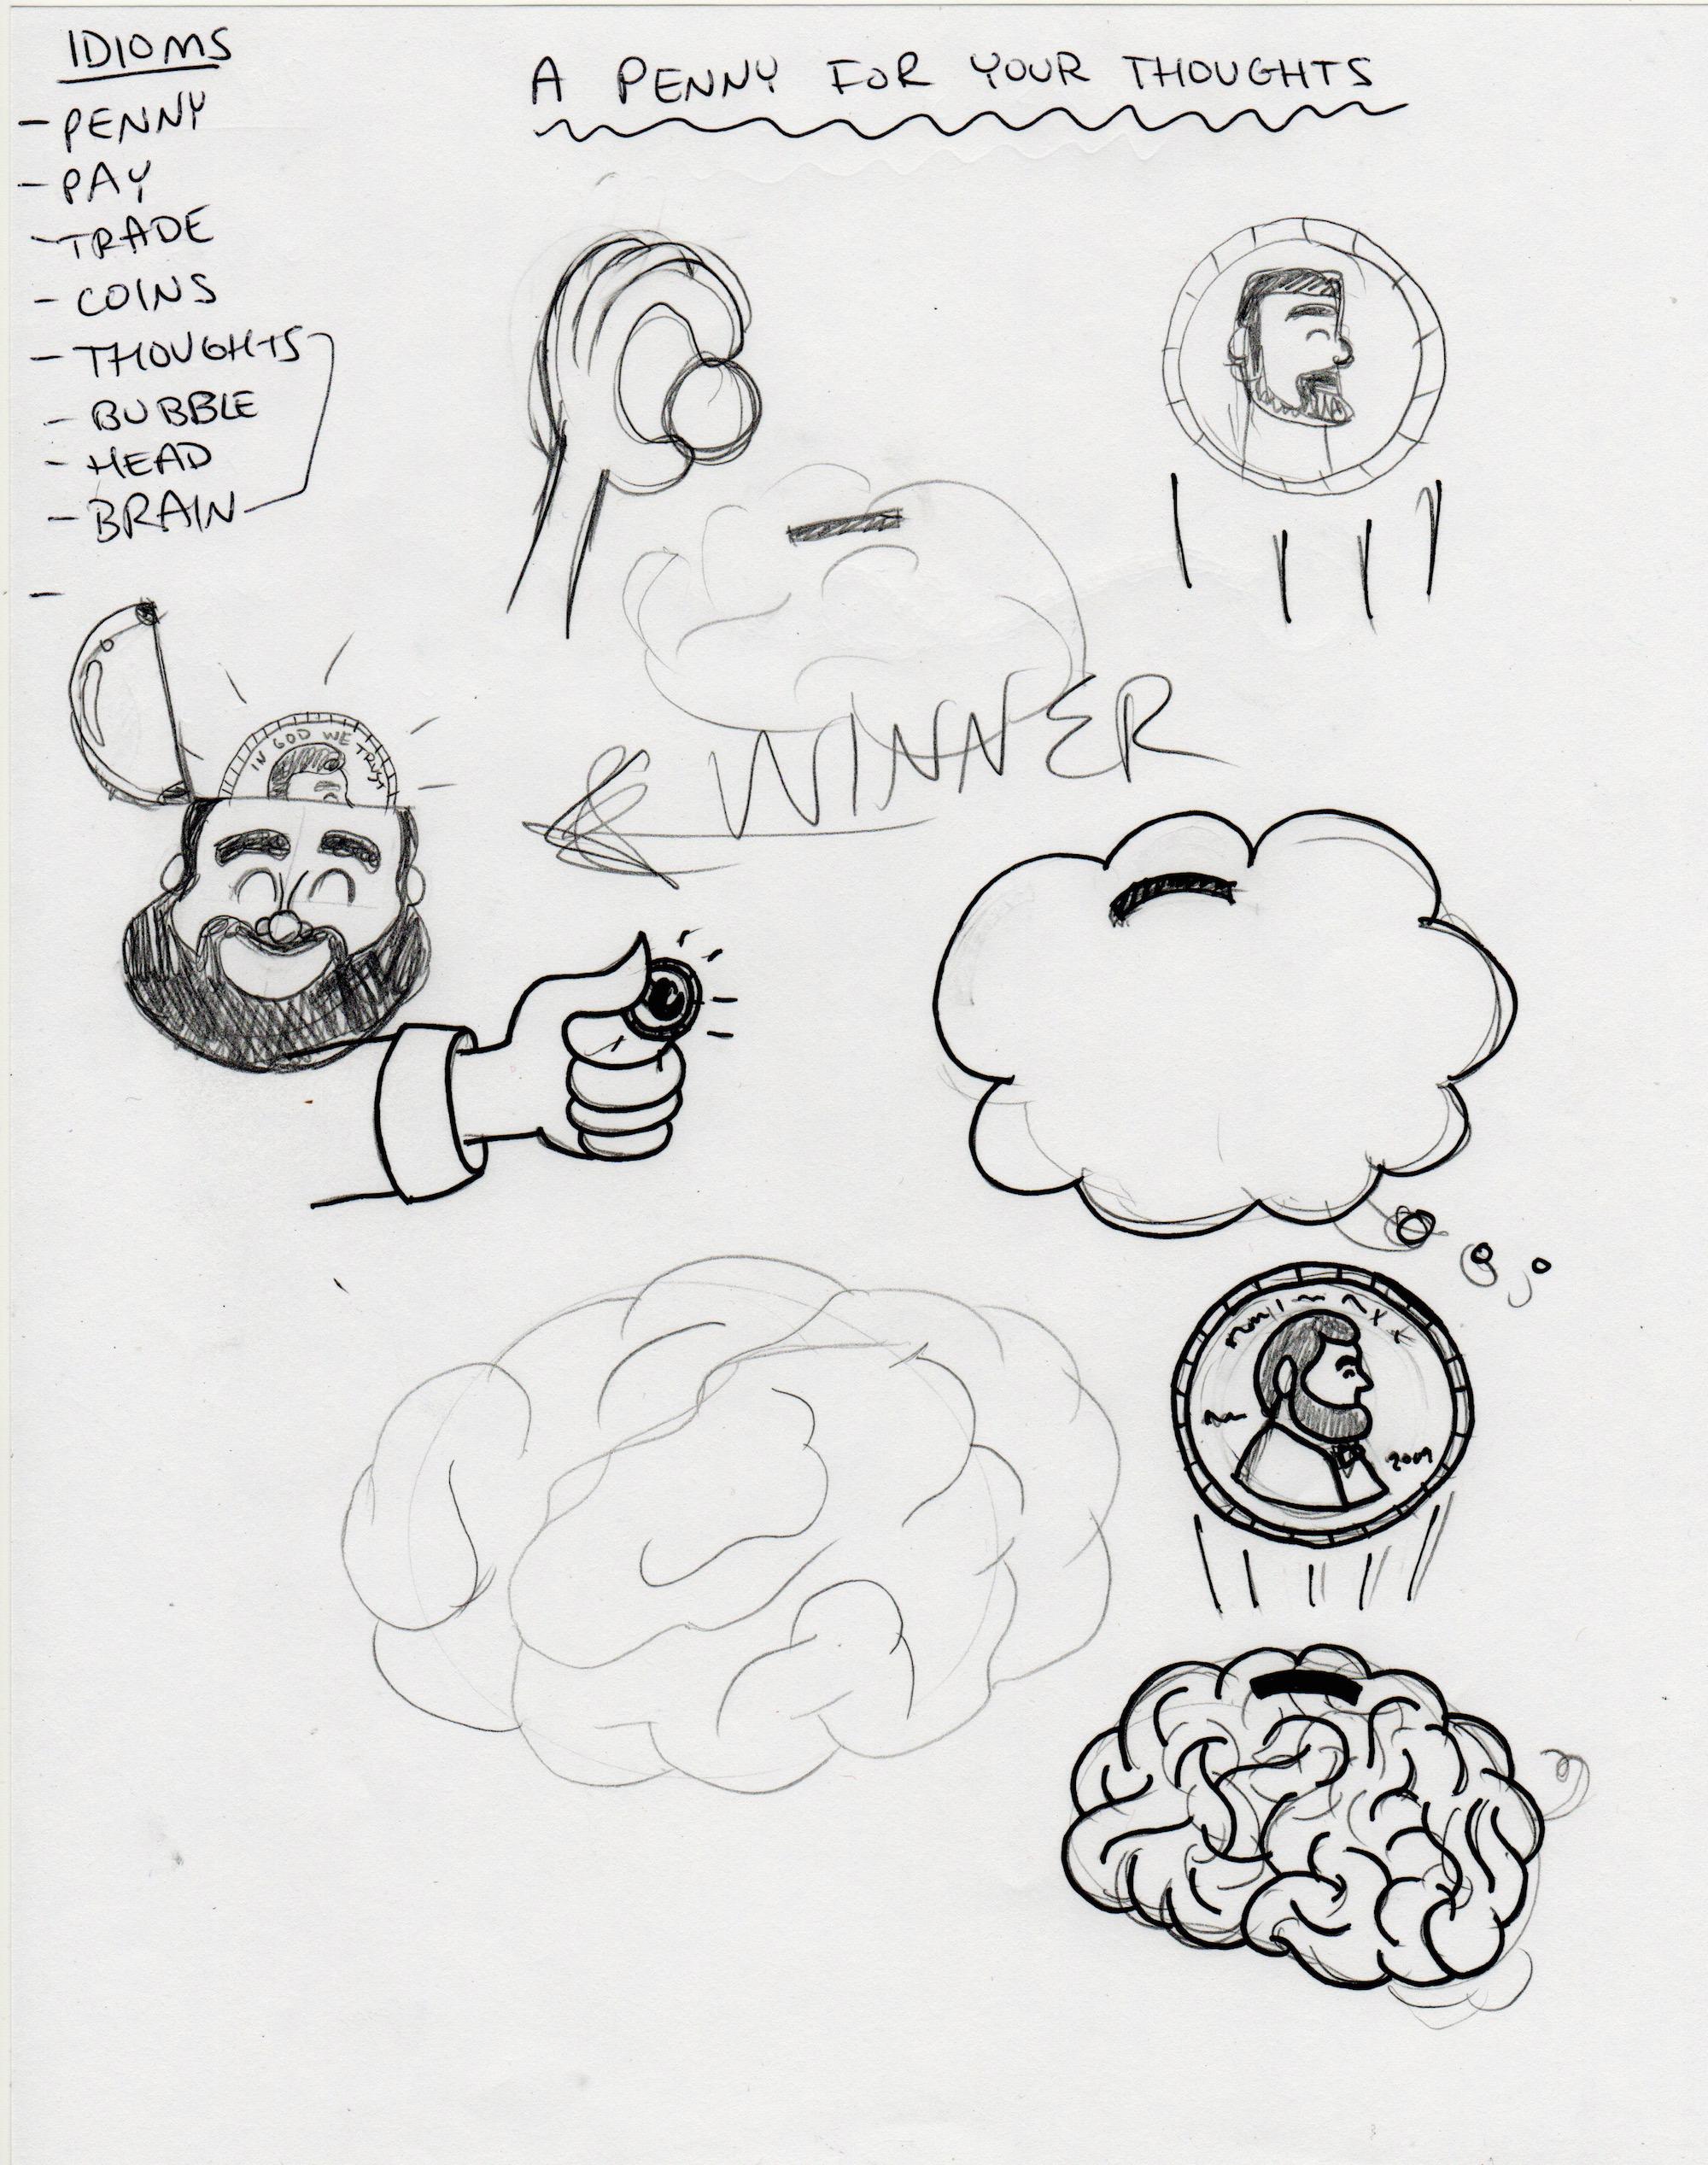 IDIOMS
- PENNY
- PAY
- TRADE
- COINS
- THOUGHTS
- BUBBLE
- HEAD
- BRAIN
-
A PENNY FOR YOUR THOUGHTS
IN GOD WE TRUST
WINNER
2009